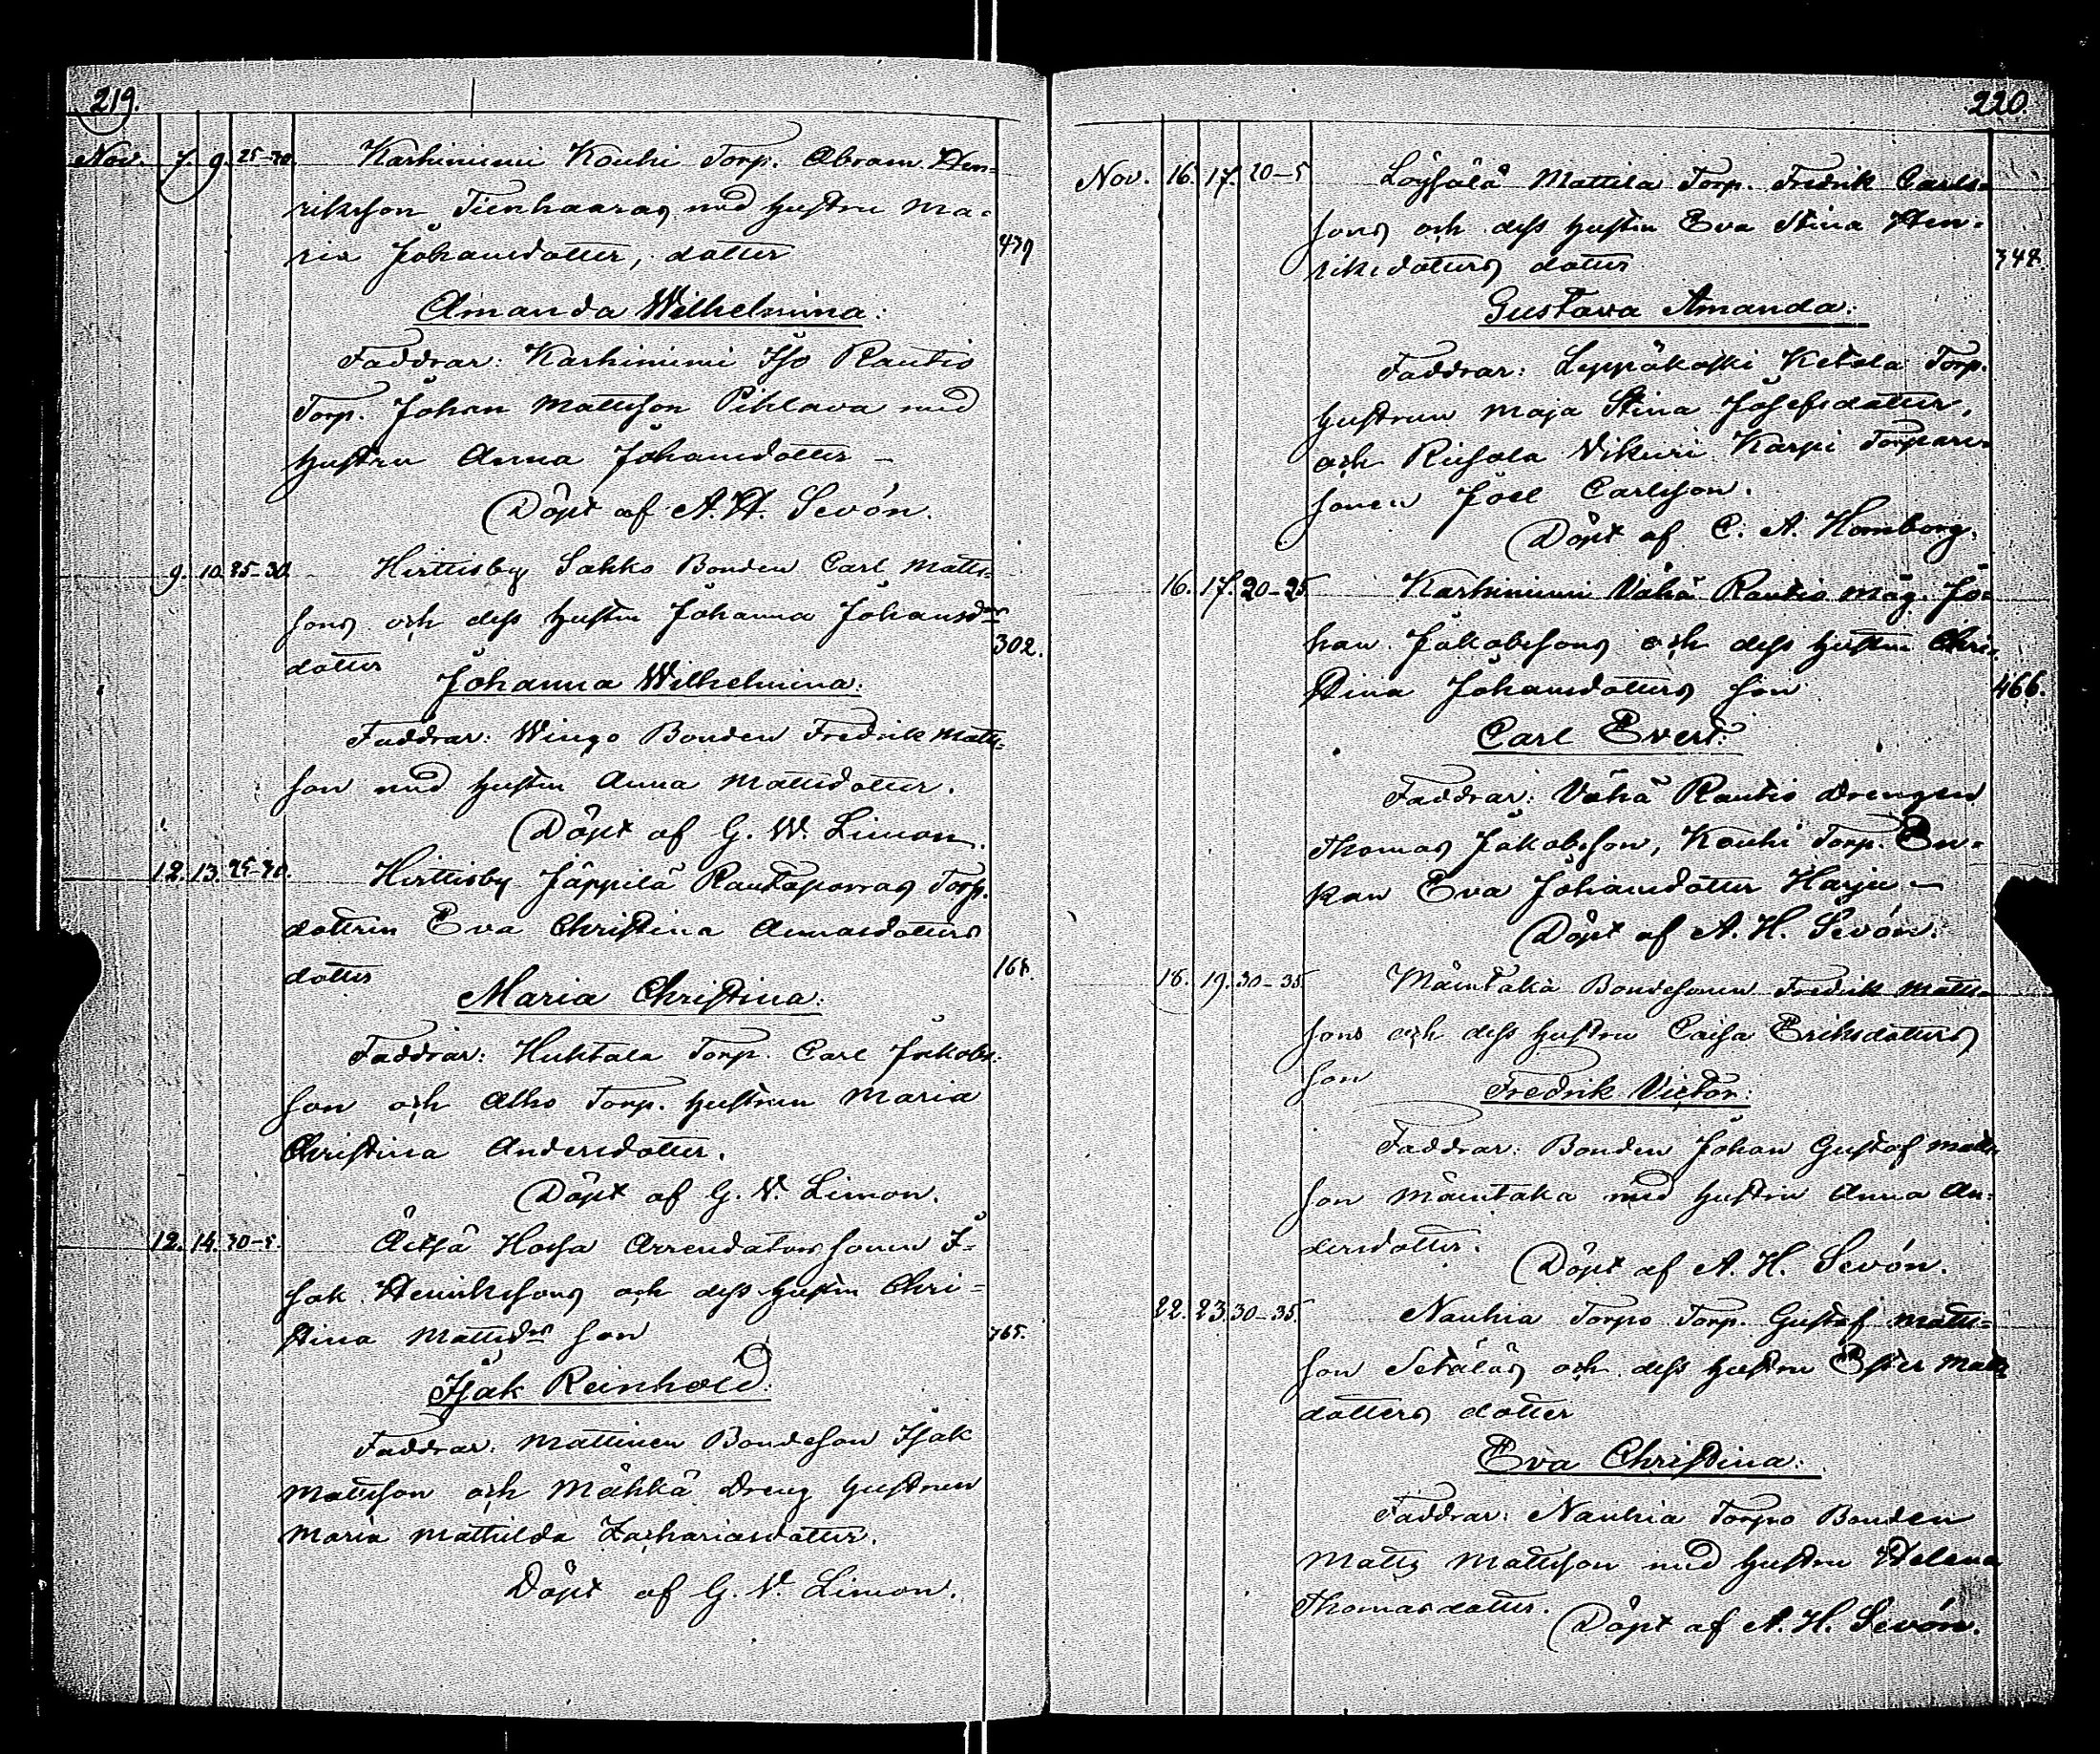 219.
Nov. 7. 9. 25-30. Karhiniemi Kouhi Torp. Abram Hen-
riksson Tienhaaras med hustru Ma-
ria Johansdotter, dotter 479
Amanda Wilhelmina:
Faddrar: Karhiniemi Iso Rautio
Torp. Johan Mattsson Pihlava med
hustru Anna Johansdotter –
Döpt af A. H. Sevón.
9. 10. 25-30. Hirttisby Sahko Bonden Carl Matts-
sons och dess hustru Johanna Johansd
dotter 302.
Johanna Wilhelmina:
Faddrar: Wingo Bonden Fredrik Matts-
son med hustru Anna Mattsdotter.
Döpt af G. W. Limon.
12. 13. 25-30. Hirttisby Jäppilä Rautaporras Torp.
dottren Eva Christina Annasdotters
dotter 168.
Maria Christina:
Faddrar: Huhtala Torp. Carl Jakobs-
son och Alho Torp. hustrun Maria
Christina Andersdotter.
Döpt af G. W. Limon.
12. 14. 30-5. Äetsä Hossa Arrendators sonen I-
sak Henrikssons och dess hustru Chri-
stina Mattsdrs son 765.
Isak Reinhold:
Faddrar: Mattinen Bondeson Isak
Mattsson och Mähkä Dreng hustrun
Maria Mathilda Zachariasdotter.
Döpt af G. W. Limon.
220.
Nov. 16. 17. 20-5 Löysälä Mattila Torp. Fredrik Carls-
sons och dess hustru Eva Stina Hen-
riksdotters dotter 348.
Gustava Amanda:
Faddrar: Leppäkoski Ketola Torp.
hustrun Maja Stina Josefsdotter,
och Risola Vikuri Karpi Torpare-
sonen Joel Carlsson.
Döpt af C. A. Homborg.
16. 17. 20-25. Karhiniemi Vähä Rautio Måg. Jo-
han Jakobssons och dess hustru Chri-
stina Johansdotters son 466.
Carl Evert:
Faddrar: Vähä Rautio Drengen
Thomas Jakobsson, Kouhi Torp. En-
kan Eva Johansdotter Harju –
Döpt af A. H. Sevón.
18. 19. 30-35. Mäentaka Bondesonen Fredrik Matts-
sons och dess hustru Caisa Eriksdotters
son
Fredrik Victor:
Faddrar: Bonden Johan Gustaf Matts-
son Mäentaka med hustru Anna An-
dersdotter.
Döpt af A. H. Sevón.
22. 23. 30-35. Nanhia Torpo Torp. Gustaf Matts-
son Setäläs och dess hustru Ester Matts
dotters dotter
Eva Christina:
Faddrar: Nanhia Torpo Bonden
Matts Mattsson med hustru Helena
Thomasdotter.
Döpt af A. H. Sevón.